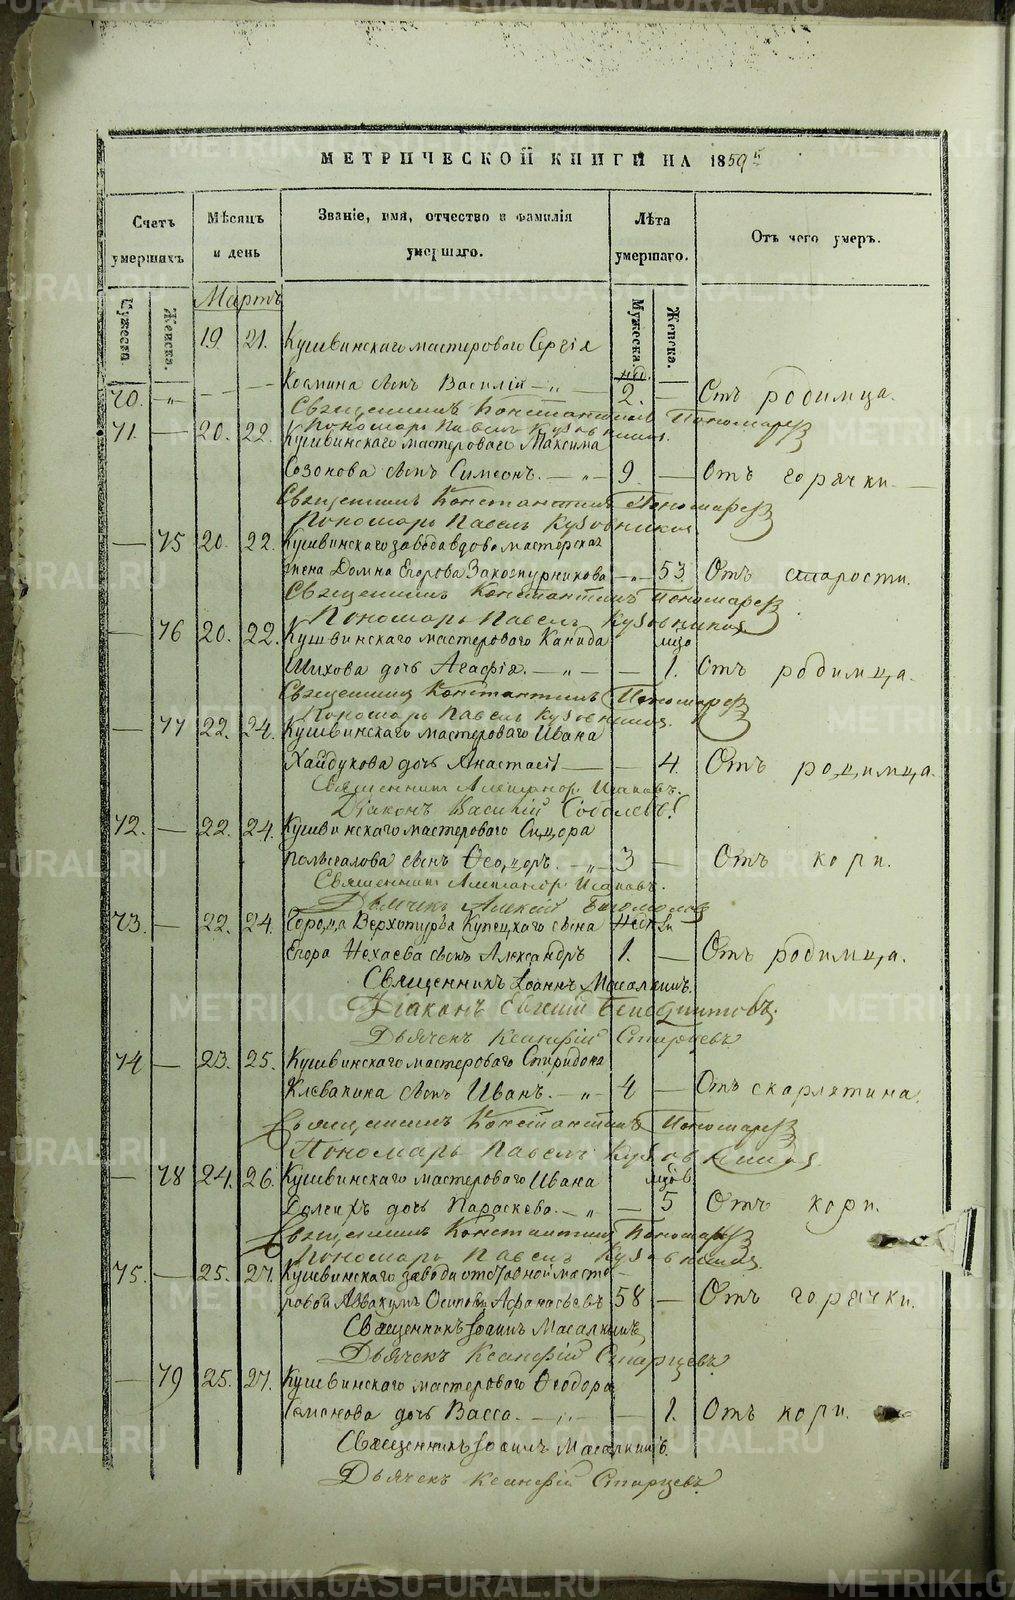 МЕТРИЧЕСКОЙ КНИГИ НА 1859
Счетъ умершихъ
Мѣсяцъ и день
Званіе, имя, отчество и фамилія умершаго.
Лѣта умершаго.
Отъ чего умеръ.
Мужеска. Женска.
Мартъ
Мужеска. Женска.
19. 21. Кушвинскаго мастероваго Сергія
70. — Космина сынъ Василій — 2. — Отъ родимца.
Священникъ Константинъ Пономаревъ
Пономарь Павелъ Кузовниковъ.
71. — 20. 22. Кушвинскаго мастероваго Максима
Созонова сынъ Симеонъ. — 9 — Отъ горячки
Священникъ Константинъ Пономаревъ
Пономарь Павелъ Кузовниковъ
— 75 20. 22. Кушвинскаго завода вдова мастерская
жена Домна Егорова — 53 Отъ старости.
Священникъ Константинъ Пономаревъ
Пономарь Павелъ Кузовниковъ
— 76 20. 22. Кушвинскаго мастероваго
Шихова дочь Агафія. — — 1. Отъ родимца.
Священникъ Константинъ Пономаревъ
Пономарь Павелъ Кузовниковъ.
— 77 22. 24. Кушвинскаго мастероваго Ивана
Хайдукова дочь Анастасія — — 4. Отъ родимца.
Священникъ Александръ
Діаконъ Василій Соболевъ
72. — 22. 24. Кушвинскаго мастероваго Сидора
сынъ Ѳеодоръ. — 3 — Отъ кори.
Священникъ Александръ
Дьячекъ Алексій
73. — 22. 24. Города Верхотурья Купецкаго сына
Егора Нехаева сынъ Александръ 1. — Отъ родимца.
Священникъ Іоаннъ Масалкинъ.
Діаконъ Евгеній
Дьячекъ Ксанфій Старцевъ
74 — 23. 25. Кушвинскаго мастероваго Спиридона
Клевакина сынъ Иванъ. — 4 — Отъ скарлятина.
Священникъ Константинъ Пономаревъ
Пономарь Павелъ Кузовниковъ
— 78 24. 26. Кушвинскаго мастероваго Ивана
дочь Параскева. — — 5 Отъ кори.
Священникъ Константинъ Пономаревъ
Пономарь Павелъ Кузовниковъ.
75. — 25. 27. Кушвинскаго завода отставной масте
ровой Аввакумъ Осиповъ Афанасьевъ 58 — Отъ горячки.
Священникъ Іоаннъ Масалкинъ
Дьячекъ Ксанфій Старцевъ
— 79 25. 27. Кушвинскаго мастероваго Ѳеодора
дочь Васса. — — 1. Отъ кори.
Священникъ Іоаннъ Масалкинъ.
Дьячекъ Ксанфій Старцевъ
METRIKI.GASO-URAL.RU